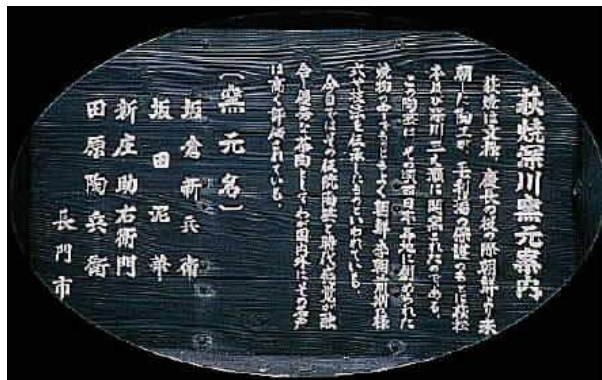 萩焼深川窯元案内
萩焼は文禄、慶長の役の際朝鮮より来
朝した陶工が、毛利藩の保護のもとに萩松
本及び深川三之瀬に開窯されたのである。
この陶芸は、その源 日本 各地に創められた
焼物の中でももっともよく朝鮮李朝
式の技法を伝承したものといわれている。
今日ではその伝統陶芸と時代感覚が融
合し優秀な茶陶としてわが国内外にその名声
は高く評価されている。
〔窯元名〕
坂倉新兵衛
坂田泥華
新庄助右衛門
田原陶兵衛
長門市